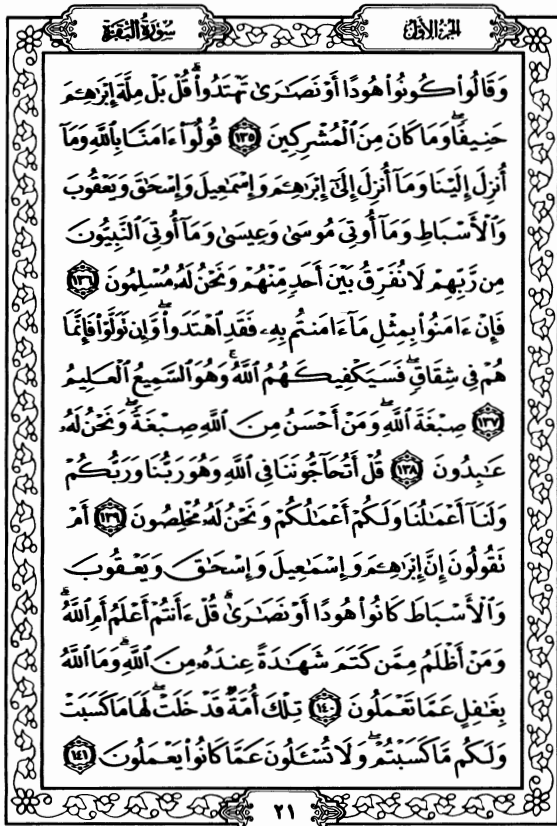 سُورَةُ البَقَرَةِ
الجزء الأول
وَقَالُوا۟ كُونُوا۟ هُودًا أَوْ نَصَـٰرَىٰ تَهْتَدُوا۟ ۗ قُلْ بَلْ مِلَّةَ إِبْرَٰهِـۧمَ
حَنِيفًا ۖ وَمَا كَانَ مِنَ ٱلْمُشْرِكِينَ ١٣٥ قُولُوٓا۟ ءَامَنَّا بِٱللَّهِ وَمَآ
أُنزِلَ إِلَيْنَا وَمَآ أُنزِلَ إِلَىٰٓ إِبْرَٰهِـۧمَ وَإِسْمَـٰعِيلَ وَإِسْحَـٰقَ وَيَعْقُوبَ
وَٱلْأَسْبَاطِ وَمَآ أُوتِىَ مُوسَىٰ وَعِيسَىٰ وَمَآ أُوتِىَ ٱلنَّبِيُّونَ
مِن رَّبِّهِمْ لَا نُفَرِّقُ بَيْنَ أَحَدٍ مِّنْهُمْ وَنَحْنُ لَهُۥ مُسْلِمُونَ ١٣٦
فَإِنْ ءَامَنُوا۟ بِمِثْلِ مَآ ءَامَنتُم بِهِۦ فَقَدِ ٱهْتَدَوا۟ ۖ وَّإِن تَوَلَّوْا۟ فَإِنَّمَا
هُمْ فِى شِقَاقٍ ۖ فَسَيَكْفِيكَهُمُ ٱللَّهُ ۚ وَهُوَ ٱلسَّمِيعُ ٱلْعَلِيمُ
١٣٧ صِبْغَةَ ٱللَّهِ ۖ وَمَنْ أَحْسَنُ مِنَ ٱللَّهِ صِبْغَةً ۖ وَنَحْنُ لَهُۥ
عَـٰبِدُونَ ١٣٨ قُلْ أَتُحَآجُّونَنَا فِى ٱللَّهِ وَهُوَ رَبُّنَا وَرَبُّكُمْ
وَلَنَآ أَعْمَـٰلُنَا وَلَكُمْ أَعْمَـٰلُكُمْ وَنَحْنُ لَهُۥ مُخْلِصُونَ ١٣٩ أَمْ
تَقُولُونَ إِنَّ إِبْرَٰهِـۧمَ وَإِسْمَـٰعِيلَ وَإِسْحَـٰقَ وَيَعْقُوبَ
وَٱلْأَسْبَاطَ كَانُوا۟ هُودًا أَوْ نَصَـٰرَىٰ ۗ قُلْ ءَأَنتُمْ أَعْلَمُ أَمِ ٱللَّهُ ۗ
وَمَنْ أَظْلَمُ مِمَّن كَتَمَ شَهَـٰدَةً عِندَهُۥ مِنَ ٱللَّهِ ۗ وَمَا ٱللَّهُ
بِغَـٰفِلٍ عَمَّا تَعْمَلُونَ ١٤٠ تِلْكَ أُمَّةٌ قَدْ خَلَتْ ۖ لَهَا مَا كَسَبَتْ
وَلَكُم مَّا كَسَبْتُمْ ۖ وَلَا تُسْـَٔلُونَ عَمَّا كَانُوا۟ يَعْمَلُونَ ١٤١
٢١